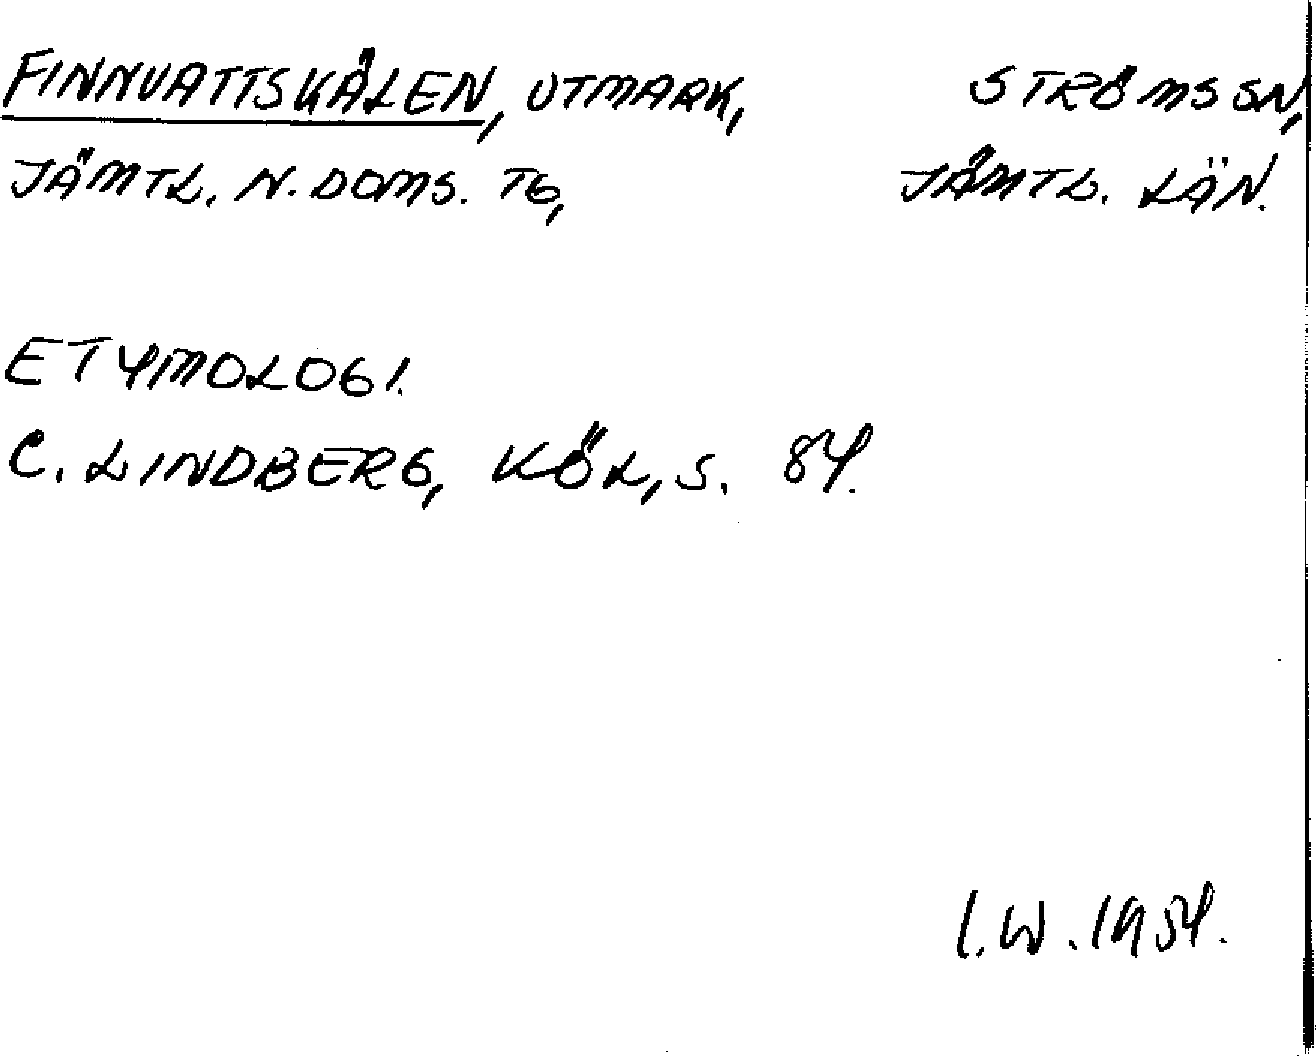 FINNVATTSKÄLEN, UTMARK, STRÖMS SN,
JÄMTL. N. DOMS. TG, JÄMTL. LÄN.
ETYMOLOGI.
C. LINDBERG, KÖL, S. 84.
I.W. 1954.